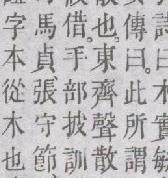 實
傳曰。此所謂
也。東齊聲散
借手部披訓
馬貞張守節
字本從木也